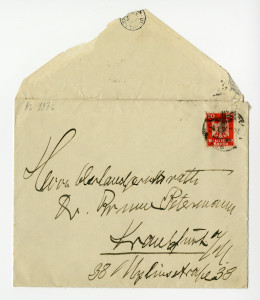 Herrn Oberlandesgerichtsrath
Dr. Bruno Petermann
Frankfurt a/M.
38 Myliusstraße 38